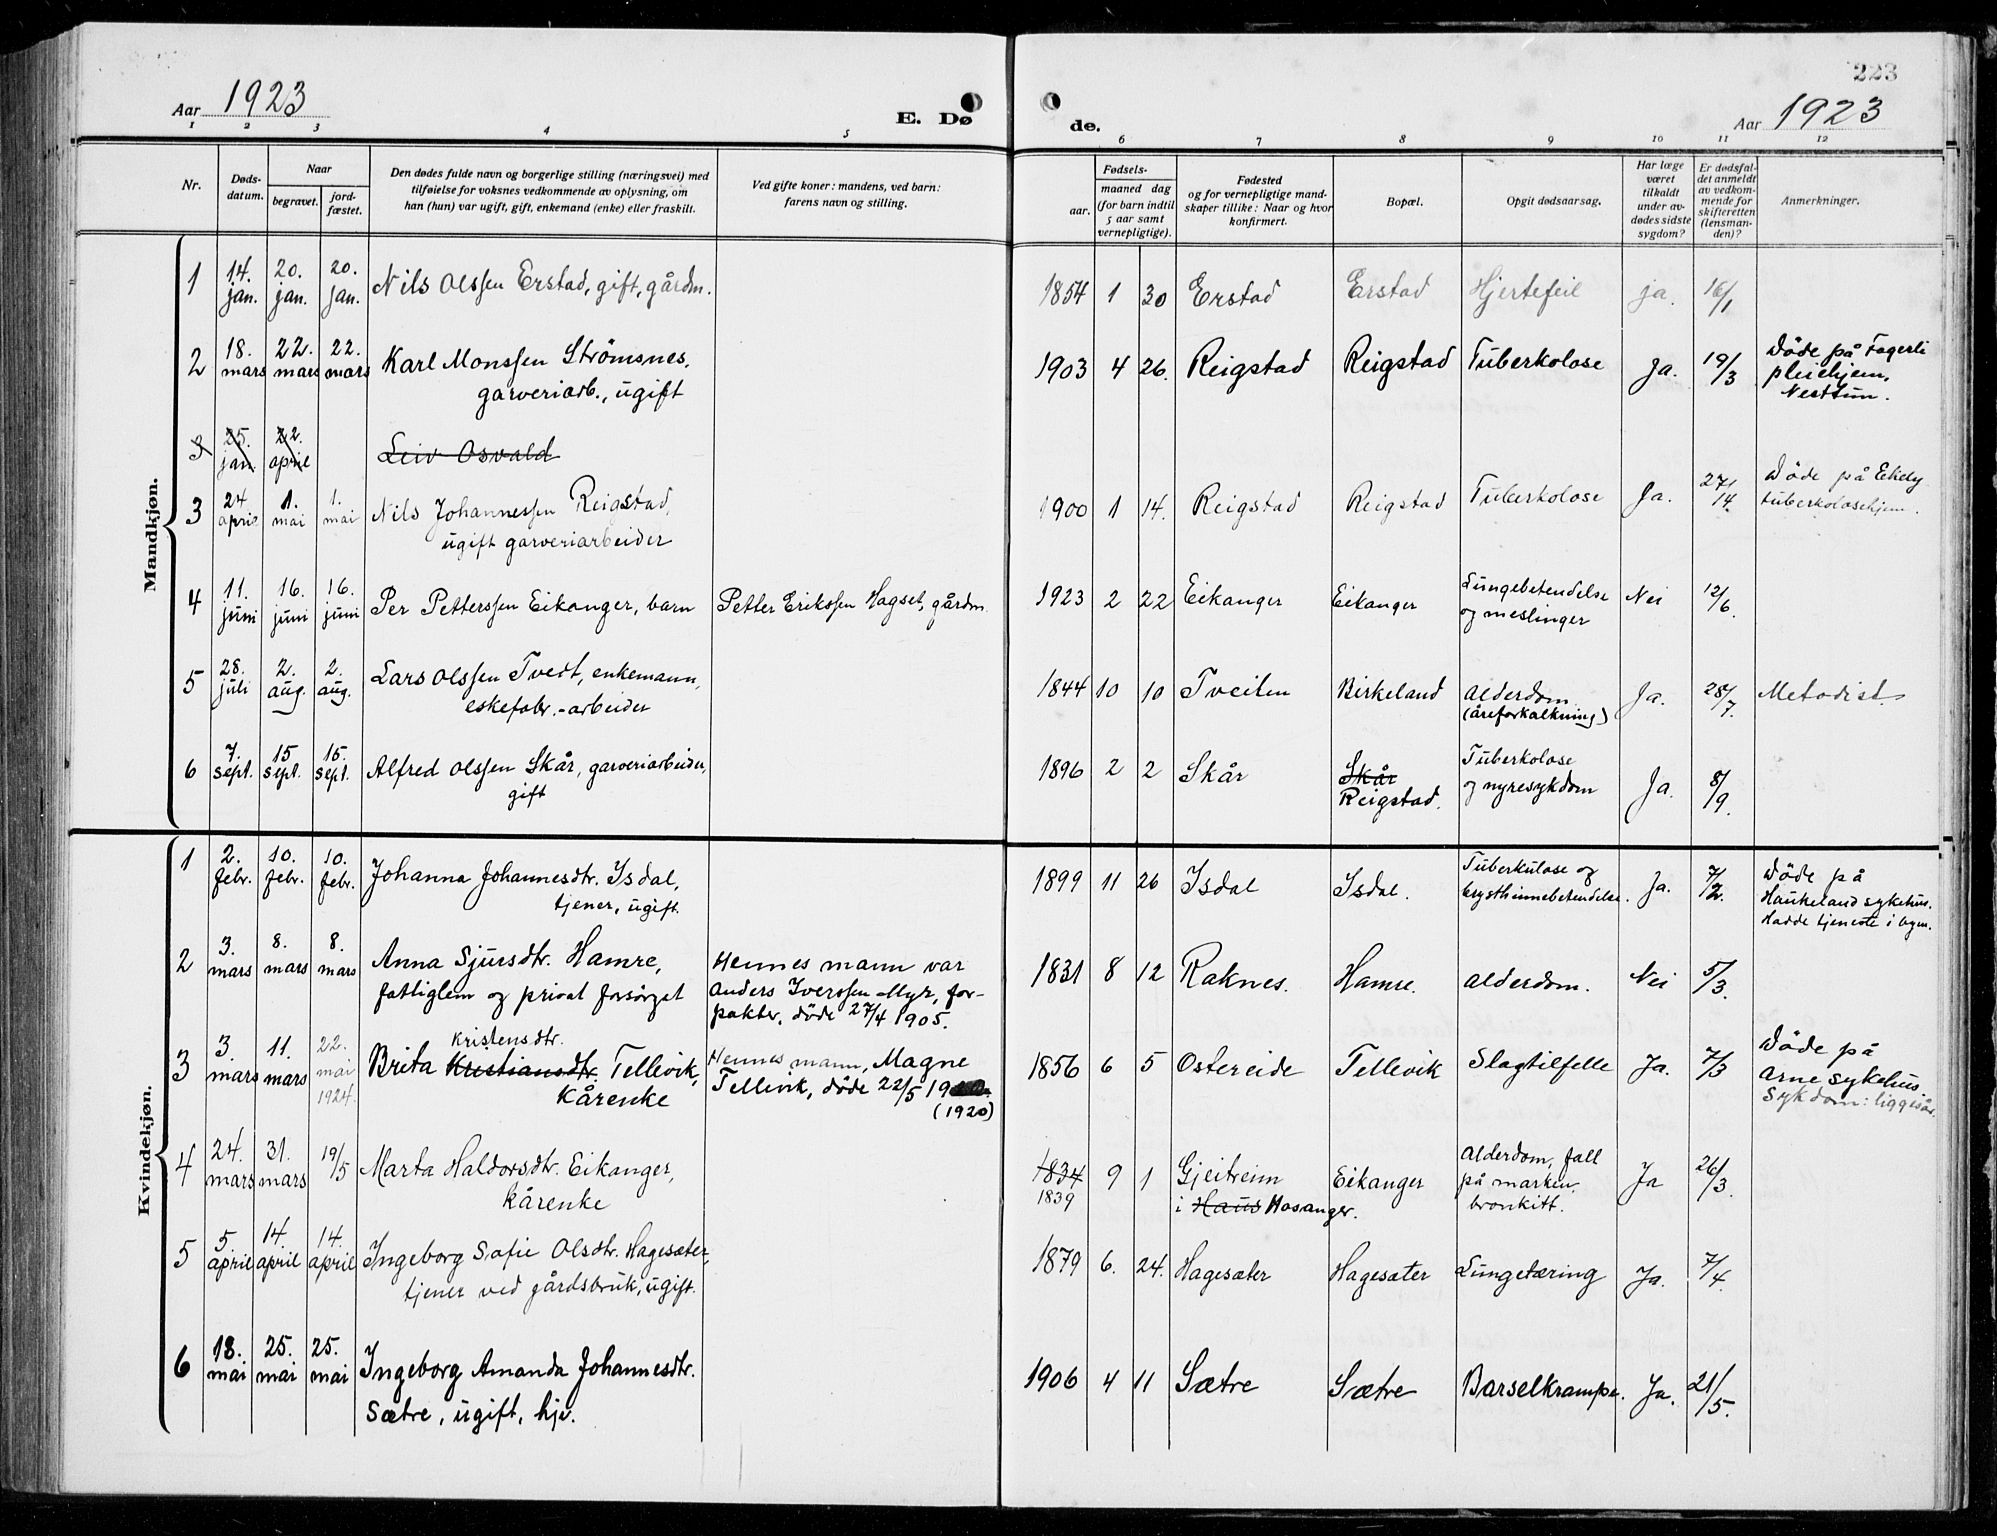 223
Aar 1923
E. Dø
de.
Aar 1923
1 2 3 4 5 6 7 8 9 10 11 12
Nr.
Døds-
datum.
Naar
begravet.
jord-
fæstet.
Den dødes fulde navn og borgerlige stilling (næringsvei) med
tilføielse for voksnes vedkommende av oplysning, om
han (hun) var ugift, gift, enkemand (enke) eller fraskilt.
Ved gifte koner: mandens, ved barn:
farens navn og stilling.
Fødsels-
aar.
maaned dag
(for barn indtil
5 aar samt
vernepligtige).
Fødested
og for vernepligtige mand-
skaper tillike: Naar og hvor
konfirmert.
Bopæl.
Opgit dødsaarsag.
Har læge
været
tilkaldt
under av-
dødes sidste
sygdom?
Er dødsfal-
det anmeldt
av vedkom-
mende for
skifteretten
(lensman-
den)?
Anmerkninger.
Mandkjøn.
1 14. jan. 20. jan. 20. jan. Nils Olssen Erstad, gift, gårdm. 1854 1 30 Erstad Erstad Hjertefeil ja. 16/1
2 18. mars 22. mars 22. mars Karl Monssen Strømsnes,
garveriarb., ugift
1903 4 26. Reigstad Reigstad Tuberkolose Ja. 19/3 Döde på Fagerli
pleiehjem,
Nesttun.
3 25. jan 22. april Leiv Osvald
3 24 april 1. mai 1. mai Nils Johannessen Reigstad,
ugift garveriarbeider
1900 1 14. Reigstad Reigstad Tuberkolose Ja. 27/14. Döde på Ekely
tuberkolosehjem.
4 11. juni 16. juni 16. juni Per Petterssen Eikanger, barn Petter Erikssen Hagset, gårdm. 1923 2 22 Eikanger Eikanger Lungebetendelse
og meslinger
Nei 12/6.
5 28. juli 2. aug. 2. aug. Lars Olssen Tvedt, enkemann,
eskefabr.-arbeider
1844 10 10 Tveiten Birkeland Alderdom
(åreforkalkning)
Ja. 28/7. Metodist.
6 7. sept. 15 sept. 15. sept. Alfred Olssen Skår, garveriarbeider,
gift
1896 2 2 Skår Skår
Reigstad.
Tuberkolose
og nyresykdom
Ja. 8/9.
Kvindekjøn.
1 2. febr. 10. febr. 10. febr. Johanna Johannesdtr. Isdal,
tjener, ugift.
1899 11 26 Isdal Isdal. Tuberkulose og
brysthinnebetendelse.
Ja. 7/2. Döde på
Haukeland sykehus.
Hadde tjeneste i byen.
2 3. mars 8. mars 8. mars Anna Sjursdtr. Hamre,
fattiglem og privat forsörget
Hennes mann var
Anders Iverssen Myr, for-
pakter, döde 27/4 1905.
1831 8 12 Raknes. Hamre. Alderdom. Nei 5/3.
3 3. mars 11. mars 22. mai 1924. kristensdtr.
Brita Kristiansdtr Tellevik,
kårenke
Hennes mann, Magne
Tellevik, döde 22/5 19
(1920)
1856 6 5 Ostereide Tellevik Slagtilfelle Ja. 7/3 Döde på
Arne sykehus
Sykdom: liggesår.
4 24. mars 31. mars 19/5 Marta Haldorsdtr. Eikanger,
kårenke
1834
1839
9 1 Gjeitreim
i Haus Hosanger.
Eikanger Alderdom, fall
på marken,
bronkitt.
Ja 26/3.
5 5 april 14 april 14. april Ingeborg Sofie Olsdtr. Hagesæter,
tjener ved gårdsbruk, ugift.
1879 6. 24. Hagesæter Hagesæter Lungetæring Ja. 7/4.
6 18. mai 25. mai 25. mai Ingeborg Amanda Johannesdtr.
Sætre, ugift, hjv.
1906 4 11 Sætre Sætre Barselkrampe. Ja. 21/5.